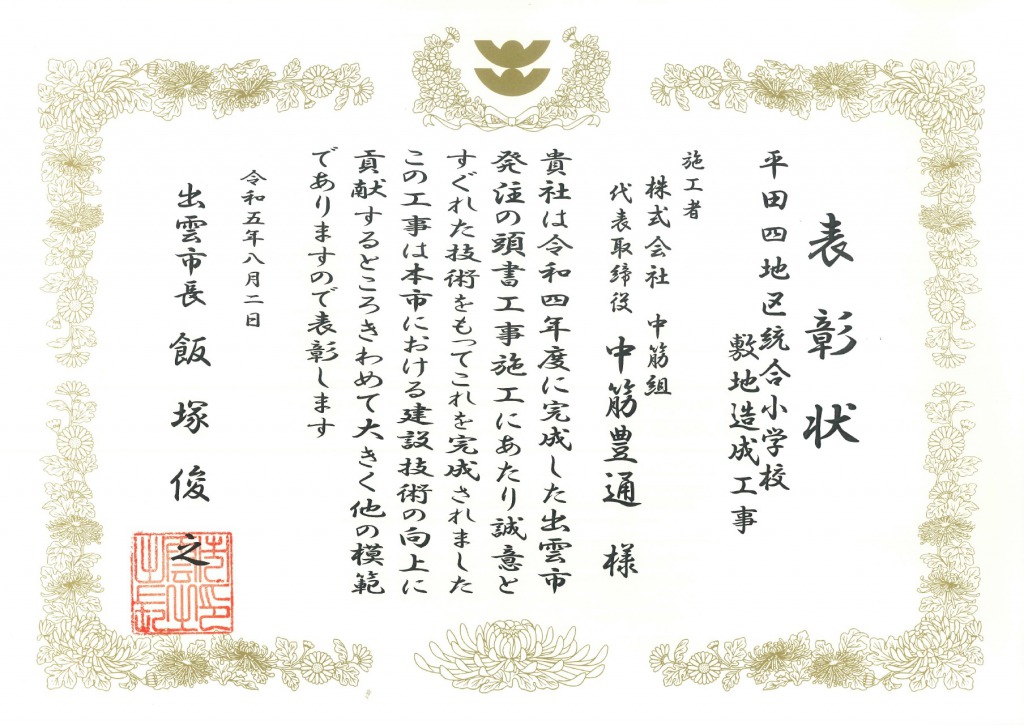 表彰状
平田四地区統合小学校
敷地造成工事
施工者
株式会社 中筋組
代表取締役 中筋豊通 様
貴社は令和四年度に完成した出雲市
発注の頭書工事施工にあたり誠意と
すぐれた技術をもってこれを完成されました
この工事は本市における建設技術の向上に
貢献するところきわめて大きく他の模範
でありますので表彰します
令和五年八月二日
出雲市長 飯塚俊之